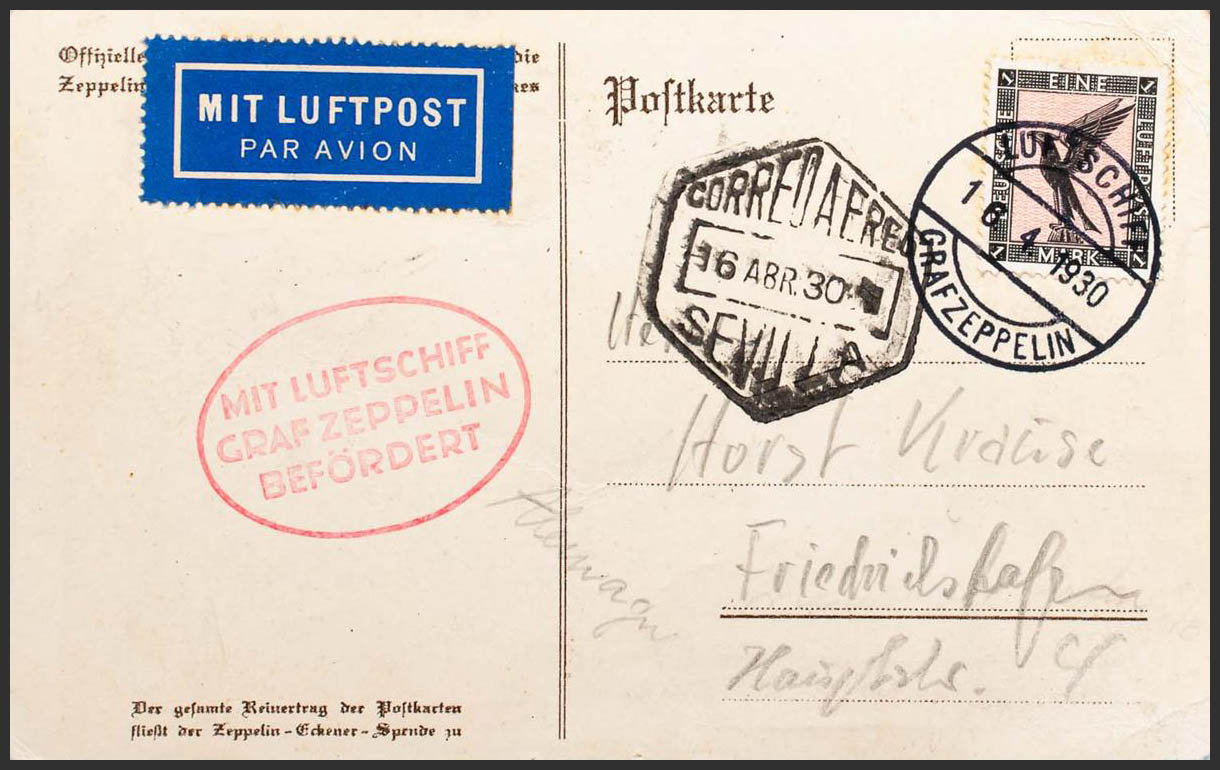 Offizielle die
Zeppelin kes
MIT LUFTPOST
PAR AVION
Postkarte
EINE
MARK
LUFTSCHIFF
16 4 1930
GRAF ZEPPELIN
CORREO AEREO
16 ABR. 30
SEVILLA
MIT LUFTSCHIFF
GRAF ZEPPELIN
BEFÖRDERT
Horst Krause
Friedrichshafen
Hauptstr.
Der gesamte Reinertrag der Postkarten
fließt der Zeppelin-Eckener-Spende zu